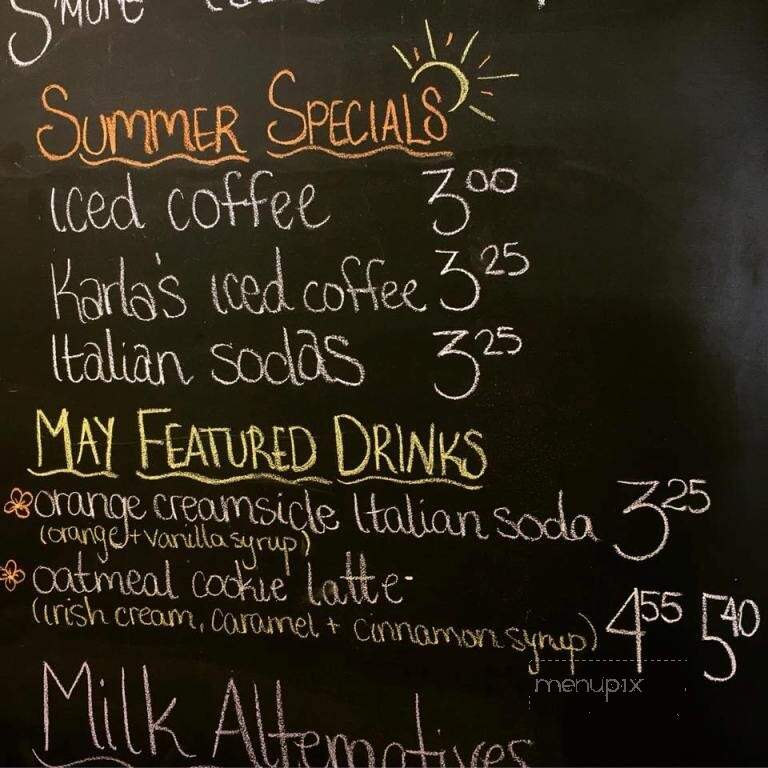 S'more
Summer Specials
iced coffee 3.00
Karla's iced coffee 3.25
Italian sodas 3.25
May Featured Drinks
orange creamsicle Italian soda 3.25
(orange + vanilla syrup)
oatmeal cookie latte
(irish cream, caramel + cinnamon syrup) 4.55 5.40
menupix
Milk Alternatives